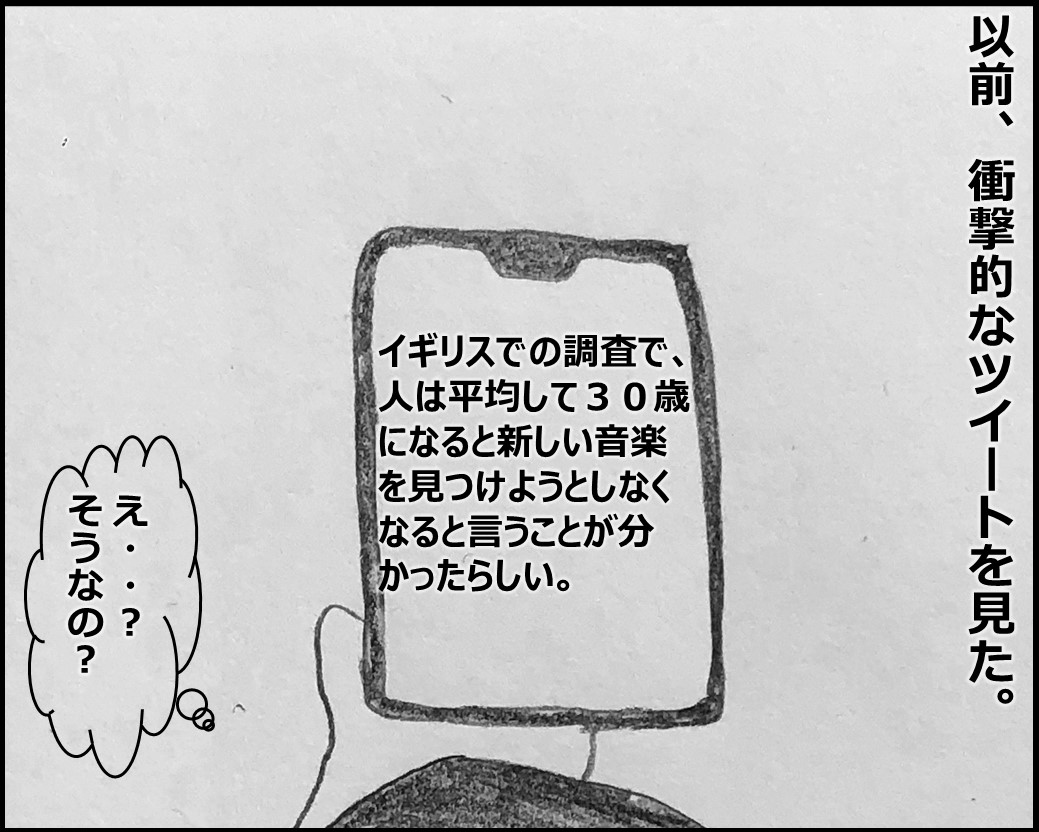 以前、衝撃的なツイートを見た。
イギリスでの調査で、
人は平均して３０歳
になると新しい音楽
を見つけようとしなく
なると言うことが分
かったらしい。
え・・？
そうなの？